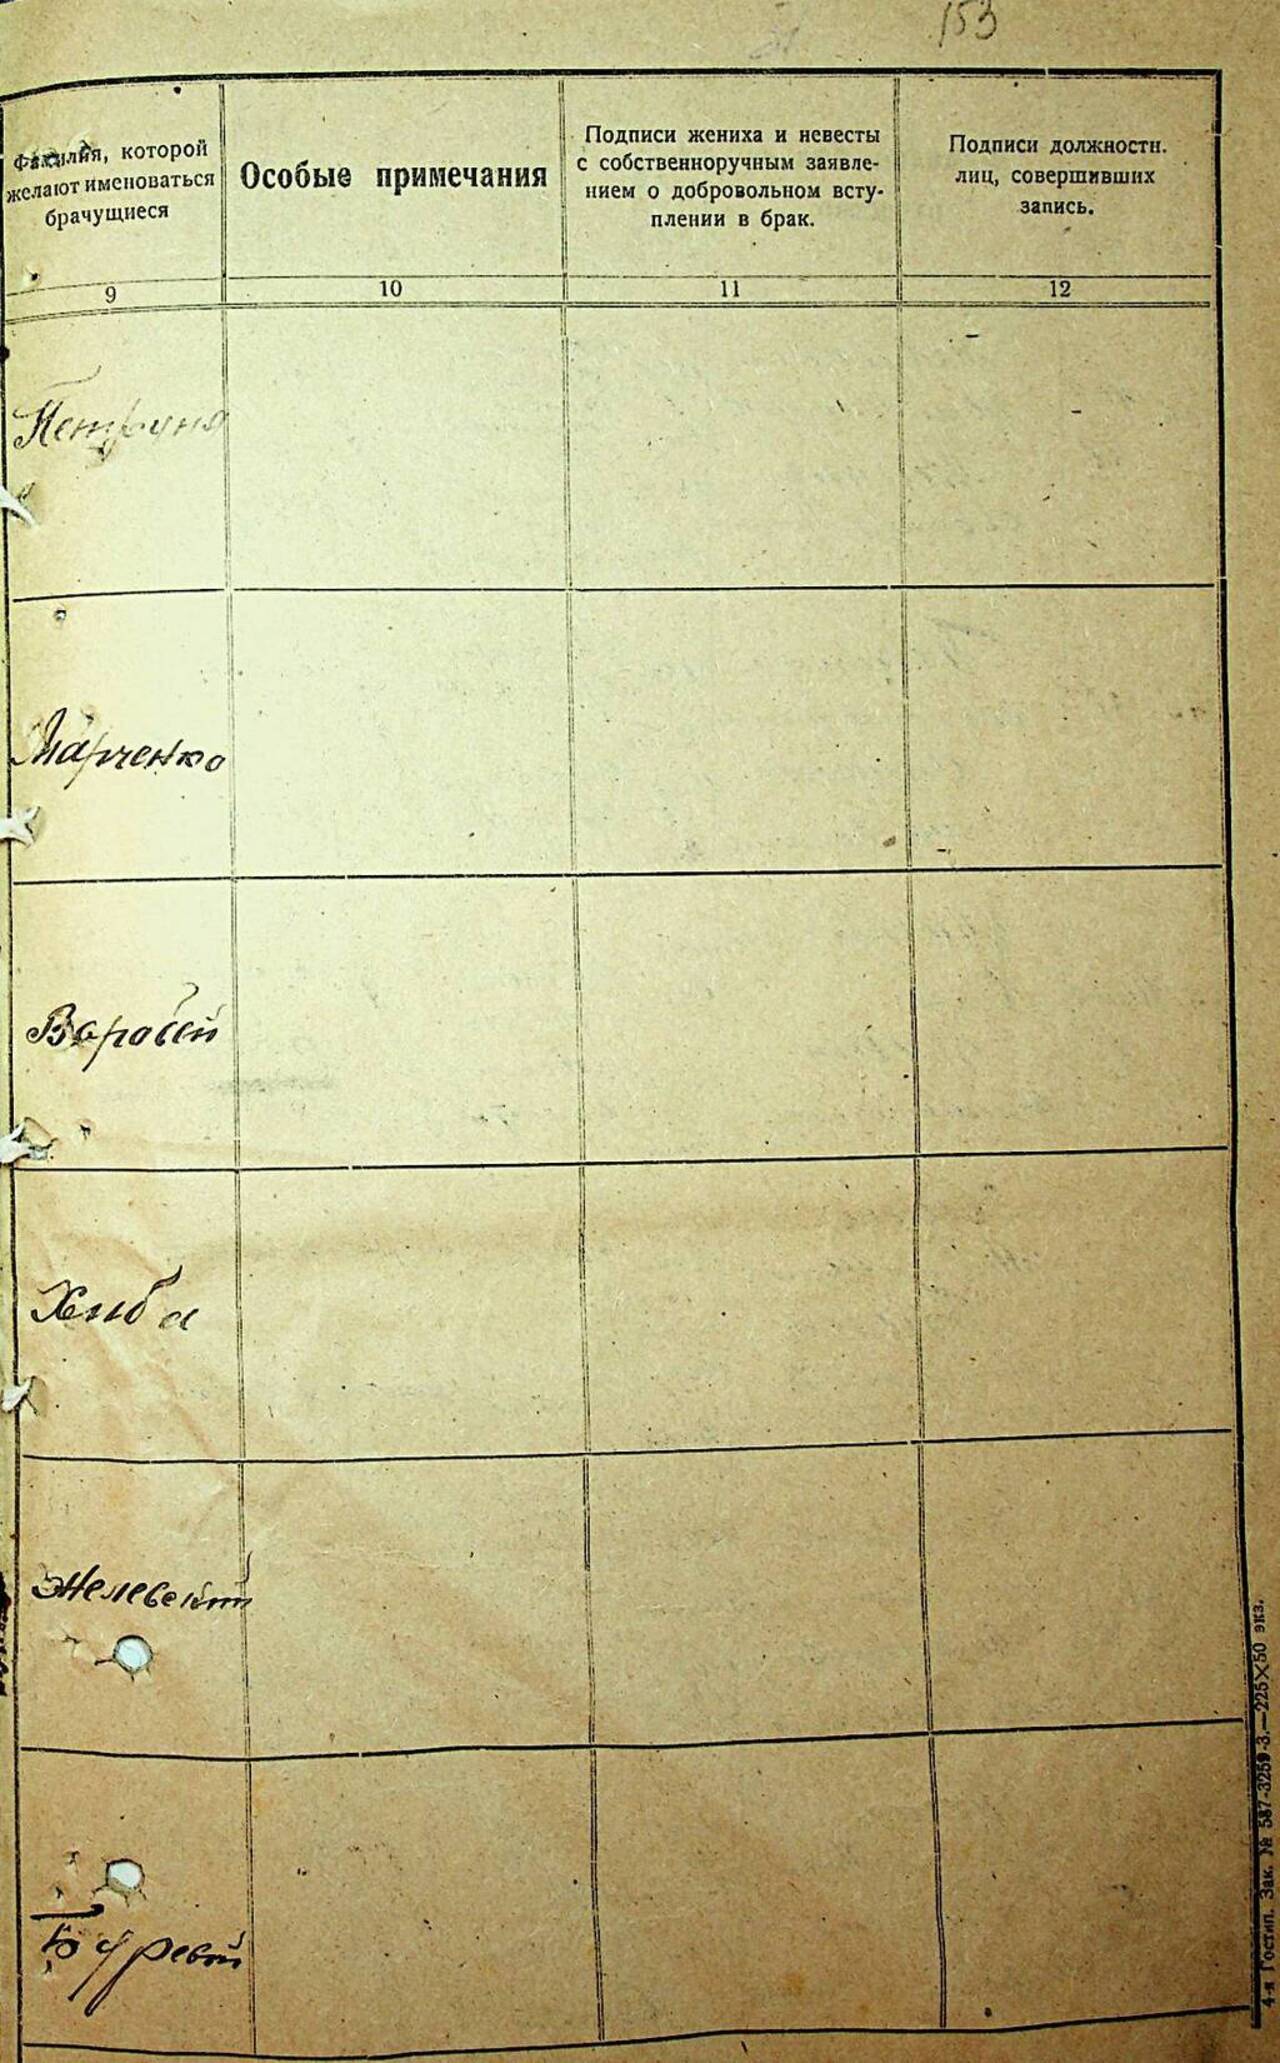 153
Фамилия, которой
желают именоваться
брачущиеся
Особые примечания
Подписи жениха и невесты
с собственноручным заявле-
нием о добровольном всту-
плении в брак.
Подписи должностн.
лиц, совершивших
запись.
9
10
11
12
Петруня
Марченко
Воробей
Хиба
Желевский
Буревой
4-я Гостип. Зак. № 587-3259-3.—225×50 экз.